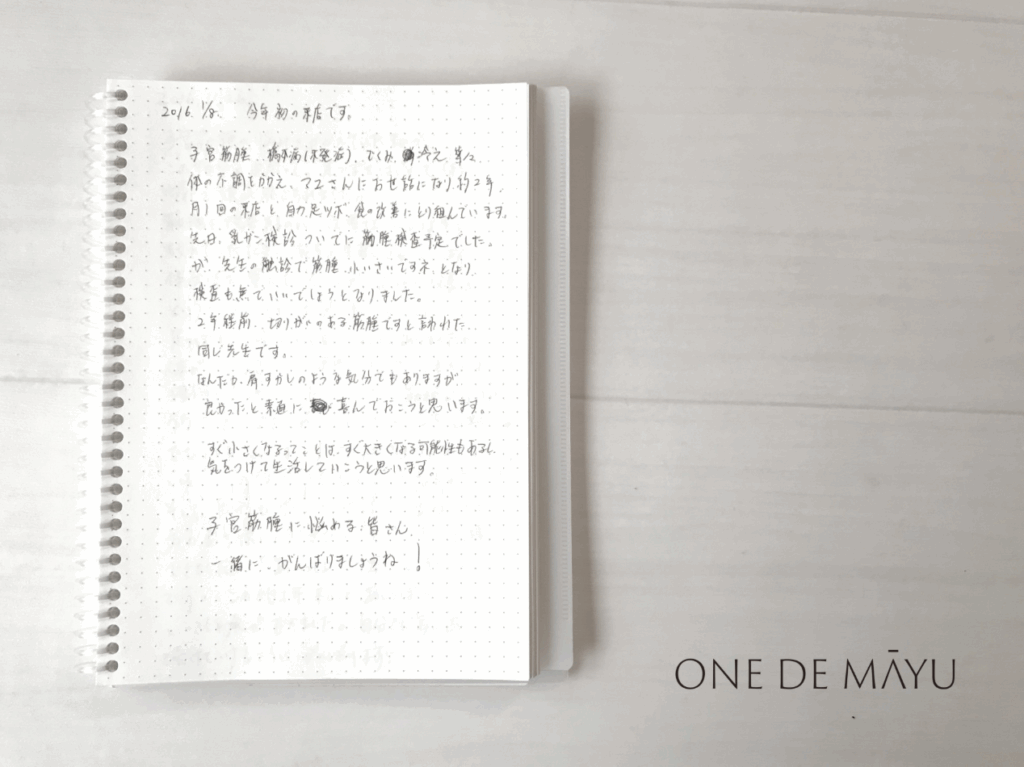 2016. 1/8. 今年初の来店です。
子宮筋腫、橋本病(未発症)、でくみ、冷え、等々
体の不調をかかえ、マユさんにお世話になり、約2年。
月1回の来店と自力足ツボ、食の改善にとり組んでいます。
先日、乳ガン検診ついでに筋腫検査予定でした。
が、先生の触診で筋腫、小いさいですネ、となり
検査も無でいいでしょうとなりました。
2年程前、切りがいのある筋腫ですと言われた
同じ先生です。
なんだか、肩すかしのような気分でもありますが
良かったと素直に 喜んでおこうと思います。
すぐ小さくなるってことは、すぐ大きくなる可能性もあるし、
気をつけて生活していこうと思います。
子宮筋腫に悩める皆さん
一緒に、がんばりましょうね!
ONE DE MĀYU